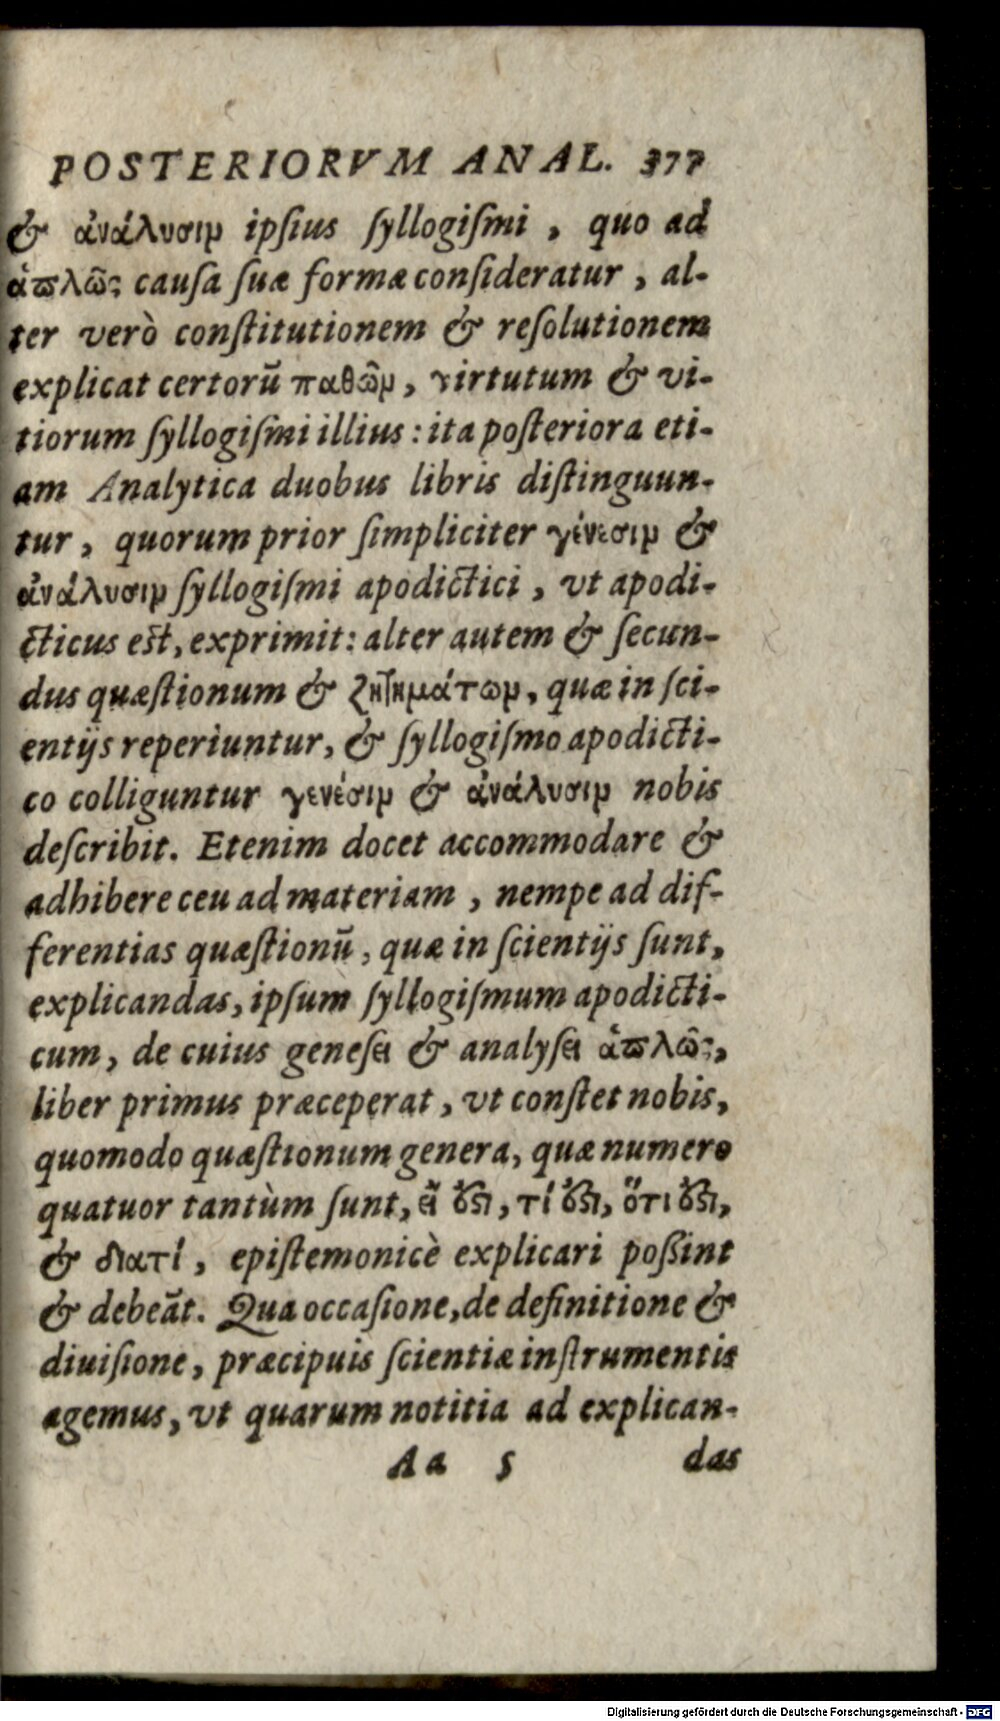 POSTERIORVM ANAL. 377
& ἀνάλυσιν ipſius ſyllogiſmi, quo ad
ἁπλῶς cauſa ſuæ formæ conſideratur, al-
ter verò conſtitutionem & reſolutionem
explicat certorū παθῶν, virtutum & vi-
tiorum ſyllogiſmi illius: ita poſteriora eti-
am Analytica duobus libris diſtinguun-
tur, quorum prior ſimpliciter γένεσιν &
ἀνάλυσιν ſyllogiſmi apodictici, vt apodi-
cticus eſt, exprimit: alter autem & ſecun-
dus quæſtionum & ζητημάτων, quæ in ſci-
entijs reperiuntur, & ſyllogiſmo apodicti-
co colliguntur γενέσιν & ἀνάλυσιν nobis
deſcribit. Etenim docet accommodare &
adhibere ceu ad materiam, nempe ad dif-
ferentias quæſtionū, quæ in ſcientijs ſunt,
explicandas, ipſum ſyllogiſmum apodicti-
cum, de cuius geneſει & analyſει ἁπλῶς,
liber primus præceperat, vt conſtet nobis,
quomodo quæſtionum genera, quæ numero
quatuor tantùm ſunt, εἴ ὅζι, τί ὅζι, ὅτι ὅζι,
& διατί, epiſtemonicè explicari poſſint
& debeāt. Qua occaſione, de definitione &
diuiſione, præcipuis ſcientiæ inſtrumentis
agemus, vt quarum notitia ad explican-
Aa 5 das
Digitalisierung gefördert durch die Deutsche Forschungsgemeinschaft - DFG